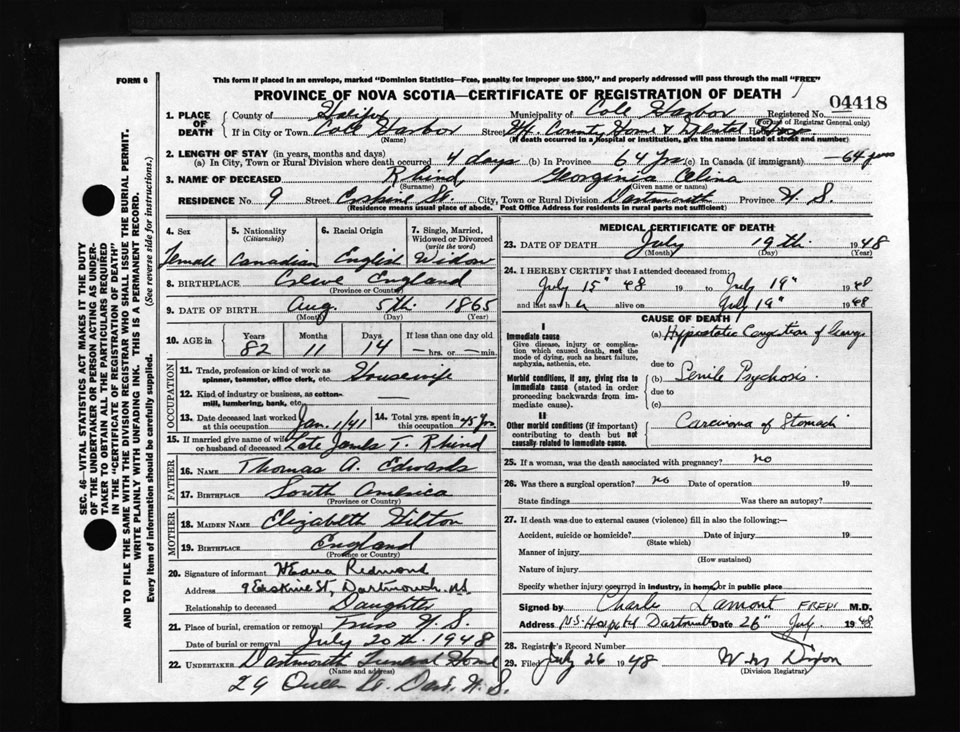 FORM 6
This form if placed in an envelope, marked "Dominion Statistics—Free, penalty for improper use $300," and properly addressed will pass through the mail "FREE"
PROVINCE OF NOVA SCOTIA—CERTIFICATE OF REGISTRATION OF DEATH
04418
SEC. 46—VITAL STATISTICS ACT MAKES IT THE DUTY
OF THE UNDERTAKER OR PERSON ACTING AS UNDER-
TAKER TO OBTAIN ALL THE PARTICULARS REQUIRED
IN THE "CERTIFICATE OF REGISTRATION OF DEATH"
AND TO FILE THE SAME WITH THE DIVISION REGISTRAR WHO SHALL ISSUE THE BURIAL PERMIT.
WRITE PLAINLY WITH UNFADING INK. THIS IS A PERMANENT RECORD.
Every item of information should be carefully supplied. (See reverse side for instructions.)
1. PLACE OF DEATH County of Halifax Municipality of Cole Harbor Registered No.
(For use of Registrar General only)
If in City or Town Cole Harbor Street County Home & Mental Hosp.
(Name) (If death occurred in a hospital or institution, give the name instead of street and number)
2. LENGTH OF STAY (in years, months and days)
(a) In City, Town or Rural Division where death occurred 4 days (b) In Province 64 yrs (c) In Canada (if immigrant) —64 years
3. NAME OF DECEASED Rhind, Georginia Celina
(Surname) (Given name or names)
RESIDENCE No 9 Street Erskine St. City, Town or Rural Division Dartmouth Province N. S.
(Residence means usual place of abode. Post Office Address for residents in rural parts not sufficient)
4. Sex 5. Nationality (Citizenship) 6. Racial Origin 7. Single, Married, Widowed or Divorced (write the word)
Female Canadian English Widow
8. BIRTHPLACE Crewe England
(Province or Country)
9. DATE OF BIRTH Aug. 5th 1865
(Month) (Day) (Year)
10. AGE in Years Months Days If less than one day old
82 11 14 — hrs. or — min.
OCCUPATION
11. Trade, profession or kind of work as spinner, teamster, office clerk, etc. Housewife
12. Kind of industry or business, as cotton-mill, lumbering, bank, etc.
13. Date deceased last worked at this occupation Jan. 1/41 14. Total yrs. spent in this occupation 45 yrs.
15. If married give name of wife or husband of deceased Late James T. Rhind
FATHER
16. NAME Thomas A. Edwards
17. BIRTHPLACE South America
(Province or Country)
MOTHER
18. MAIDEN NAME Elizabeth Hilton
19. BIRTHPLACE England
(Province or Country)
20. Signature of informant Redmond
Address 9 Erskine St, Dartmouth. N.S.
Relationship to deceased Daughter
21. Place of burial, cremation or removal Truro N. S.
Date of burial or removal July 20th 1948
22. UNDERTAKER Dartmouth Funeral Home
(Name and address)
29 Queen St. Dart. N. S.
MEDICAL CERTIFICATE OF DEATH
23. DATE OF DEATH July 19th 1948
(Month) (Day) (Year)
24. I HEREBY CERTIFY that I attended deceased from:
July 15" 48 19 to July 19" 1948
and last saw her alive on July 19" 1948
CAUSE OF DEATH
I
Immediate cause
Give disease, injury or complication which caused death, not the mode of dying, such as heart failure, asphyxia, asthenia, etc.
(a) Hypostatic Congestion of lungs
due to
Morbid conditions, if any, giving rise to immediate cause (stated in order proceeding backwards from immediate cause).
(b) Senile Psychosis
due to
(c)
II
Other morbid conditions (if important) contributing to death but not causally related to immediate cause.
Carcinoma of Stomach
25. If a woman, was the death associated with pregnancy? no
26. Was there a surgical operation? no Date of operation 19
State findings Was there an autopsy?
27. If death was due to external causes (violence) fill in also the following:—
Accident, suicide or homicide? Date of injury 19
(State which)
Manner of injury
(How sustained)
Nature of injury
Specify whether injury occurred in industry, in home or in public place
Signed by Charles Lamont M.D.
Address N.S. Hospital Dartmouth Date 26" July 1948
28. Registrar's Record Number
29. Filed July 26 1948 Dixon
(Division Registrar)